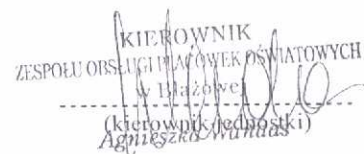 KIEROWNIK
ZESPOŁU OBSŁUGI PLACÓWEK OŚWIATOWYCH
w Błażowej
(kierownik jednostki)
Agnieszka